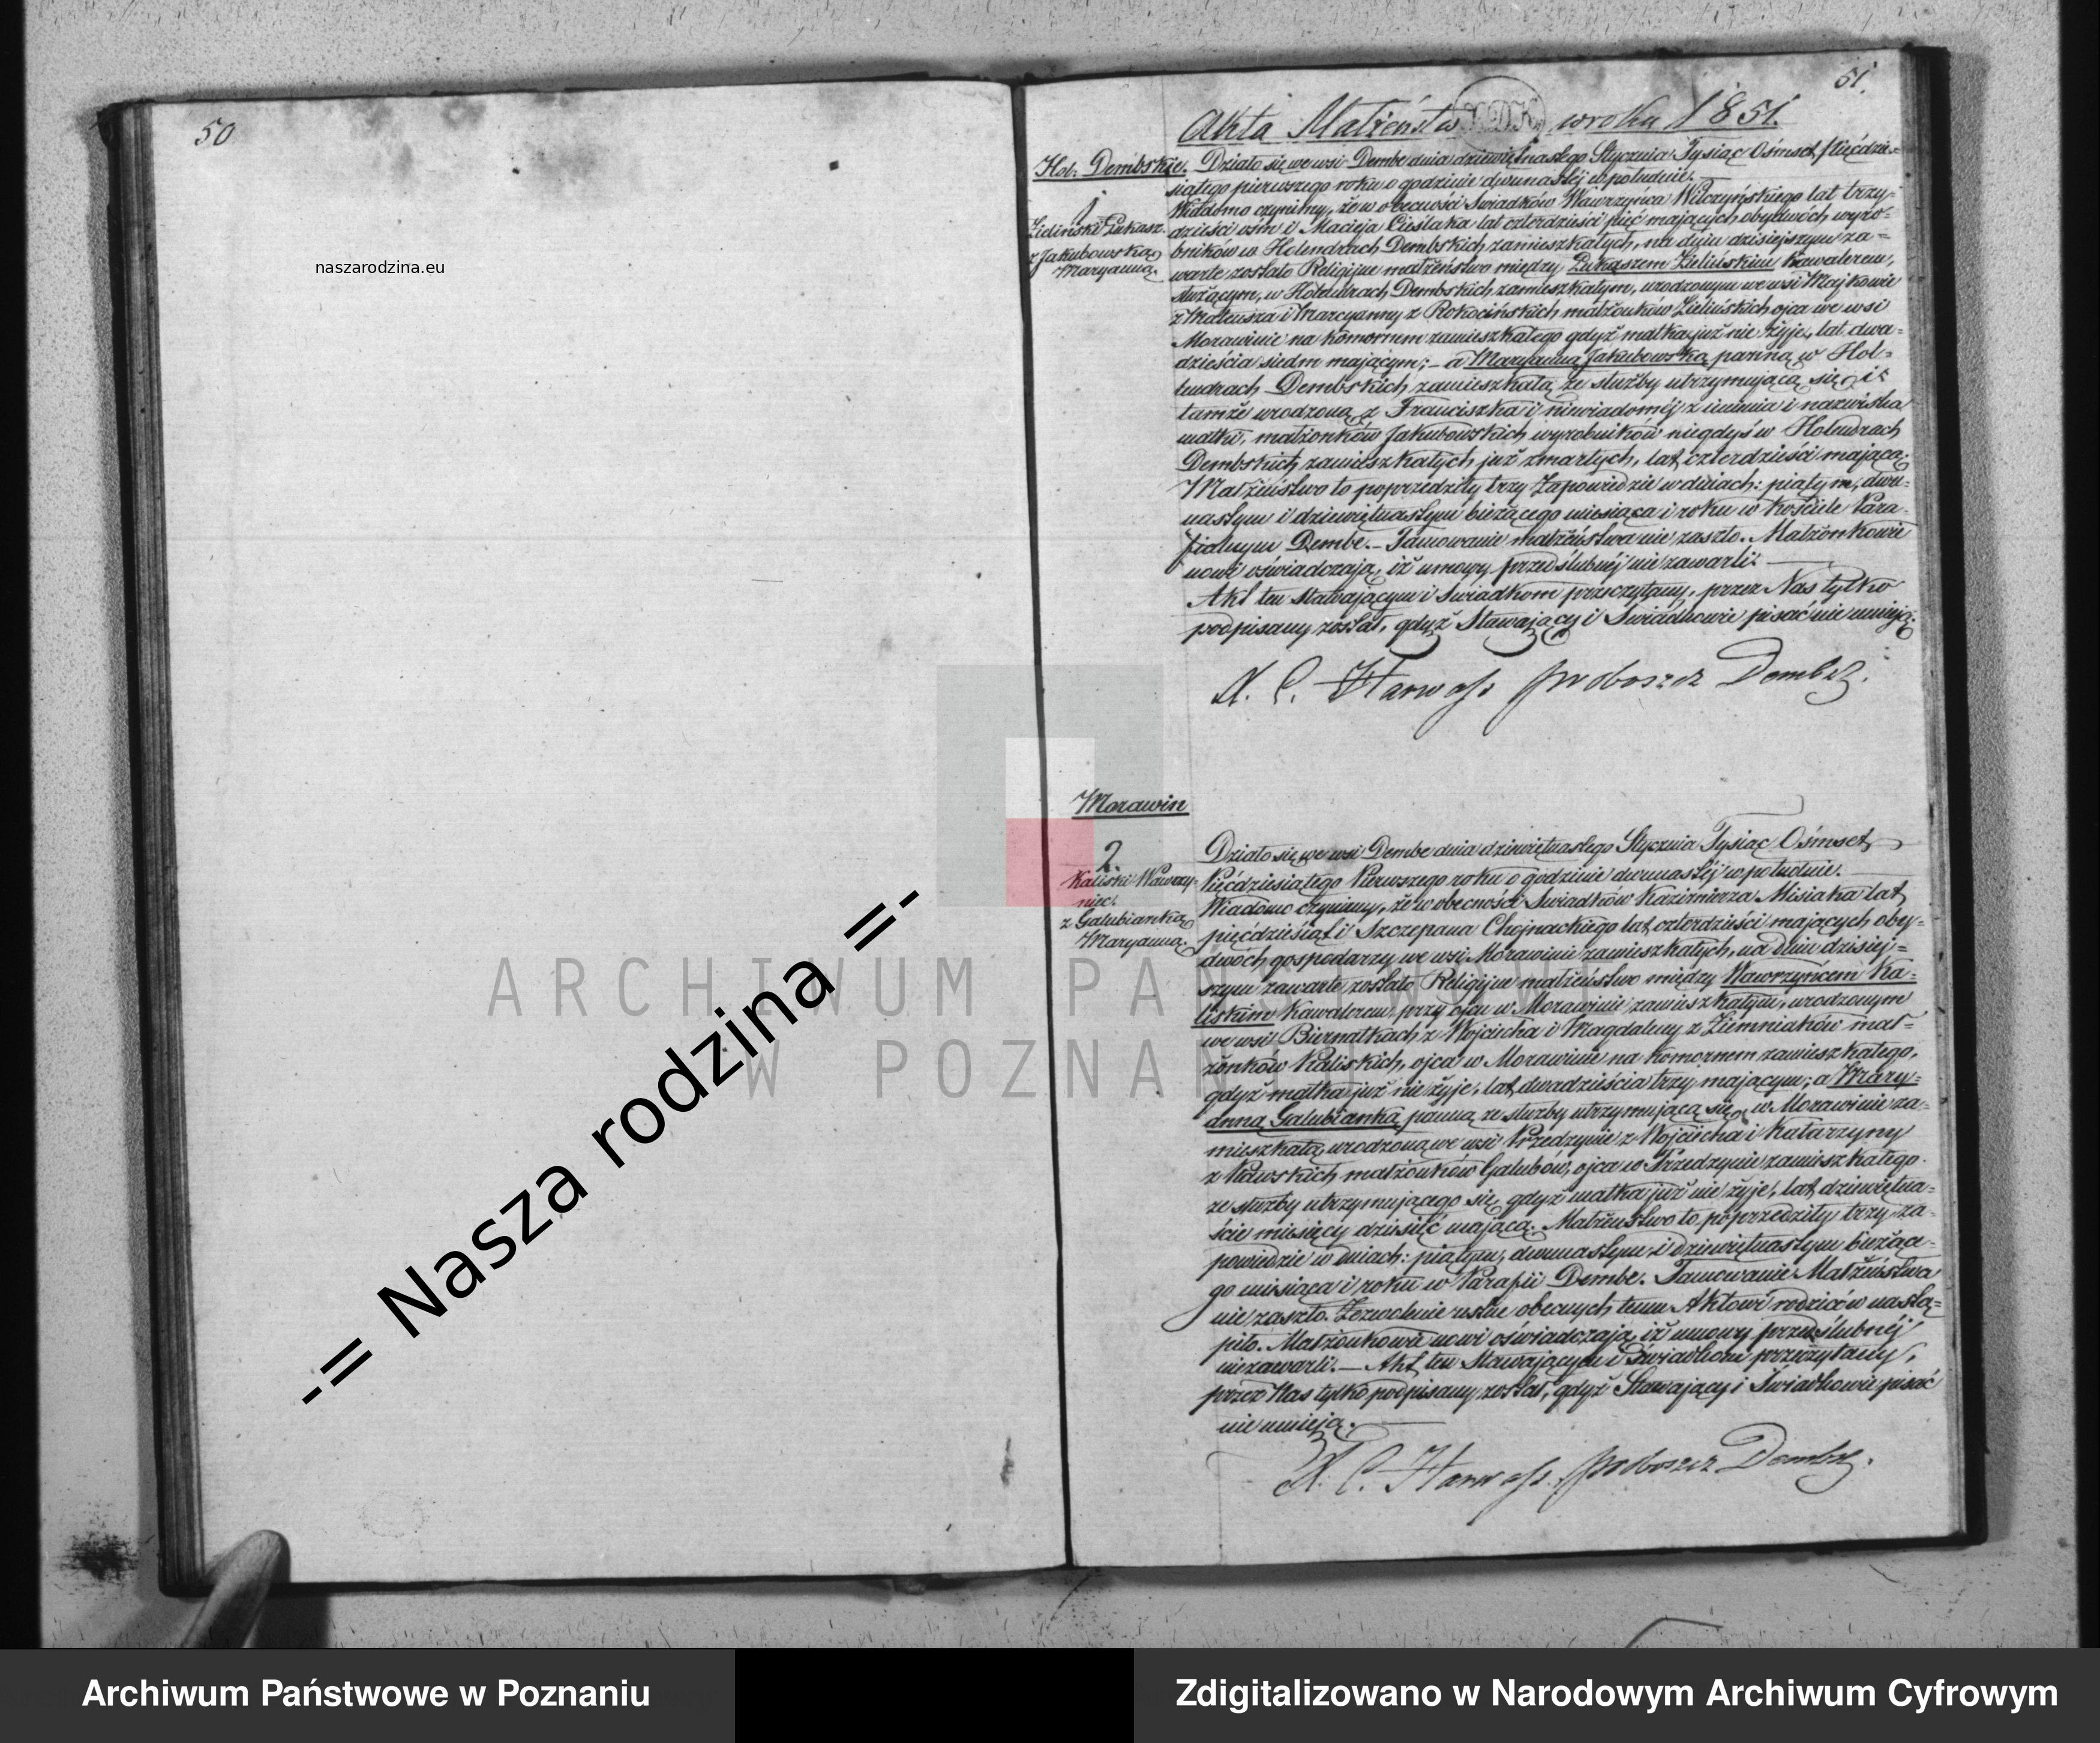 50
naszarodzina.eu
51.
Akta Małżeństw w roku 1851.
Hol: Dembskie.
1
Zieliński Łukasz.
z Jakubowską
Maryanną.
Działo się we wsi Dembe dnia dziewiętnastego Stycznia Tysiąc Ośmset Pięćdzie-
siątego pierwszego roku o godzinie dwunastéj w południe.
Wiadomo czynimy, że w obecności Świadków Wawrzyńca Wilczyńskiego lat trzy-
dzieści ośm i Macieja Cieślaka lat czterdzieści pięć mających obydwóch wyro-
bników w Holendrach Dembskich zamieszkałych, na dniu dzisiejszym za-
warte zostało Religijne małżeństwo między Łukaszem Zielińskim Kawalerem,
służącym, w Holendrach Dembskich zamieszkałym, urodzonym we wsi Majkowie
z Mateusza i Marcyanny z Rokocińskich małżonków Zielińskich ojca we wsi
Morawinie na komornem zamieszkałego gdyż matka już nie żyje, lat dwa-
dzieścia siedm mającym; – a Maryanną Jakubowską panną w Hol-
lendrach Dembskich zamieszkałą ze służby utrzymującą się i
tamże urodzoną z Franciszka i niewiadoméj z imienia i nazwiska
matki, małżonków Jakubowskich wyrobników niegdyś w Holendrach
Dembskich zamieszkałych już zmarłych, lat czterdzieści mającą.
Małżeństwo to poprzedziły trzy Zapowiedzie w dniach: piątym, dwu-
nastym i dziewiętnastym bieżącego miesiąca i roku w Kościele Para-
fialnym Dembe. – Tamowanie małżeństwa nie zaszło. Małżonkowie
nowi oświadczają, iż umowy przedślubnéj nie zawarli.
Akt ten Stawającym i Świadkom przeczytany, przez Nas tylko
podpisany został, gdyż Stawający i Świadkowie pisać nie umieją.
X. C. Harwass proboszcz Dembski.
Morawin
2.
Kaliski Wawrzy-
niec.
z Galubianką
Maryanną.
Działo się we wsi Dembe dnia dziewiętnastego Stycznia Tysiąc Ośmset
Pięćdziesiątego Pierwszego roku o godzinie dwunastéj w południe.
Wiadomo czynimy, że w obecności Świadków Kazimierza Misiaka lat
pięćdziesiąt i Szczepana Chojnackiego lat czterdzieści mających oby-
dwóch gospodarzy we wsi Morawinie zamieszkałych, na dniu dzisiej-
szym zawarte zostało Religijne małżeństwo między Wawrzyńcem Ka-
liskim Kawalerem przy ojcu w Morawinie zamieszkałym, urodzonym
we wsi Biernatkach z Wojciecha i Magdaleny z Ziemniaków mał-
żonków Kaliskich, ojca w Morawinie na komornem zamieszkałego,
gdyż matka już nie żyje, lat dwadzieścia trzy mającym; a Mary-
anną Galubianką panną ze służby utrzymującą się, w Morawinie za-
mieszkałą, urodzoną we wsi Przedzynie z Wojciecha i Katarzyny
z Pawskich małżonków Galubów, ojca w Przedzynie zamieszkałego
ze służby utrzymującego się, gdyż matka już nie żyje, lat dziewiętna-
ście miesięcy dziesięć mającą. Małżeństwo to poprzedziły trzy za-
powiedzie w dniach: piątym, dwunastym i dziewiętnastym bieżące-
go miesiąca i roku w Parafii Dembe. Tamowanie Małżeństwa
nie zaszło. Zezwolenie ustne obecnych temu Aktowi rodziców nastą-
piło. Małżonkowie nowi oświadczają, iż umowy przedślubnéj
niezawarli. – Akt ten Stawającym i Świadkom przeczytany,
przez Nas tylko podpisany został, gdyż Stawający i Świadkowie pisać
nie umieją.
X. C. Harwass. proboszcz Dembski.
-= Nasza rodzina =-
ARCHIWUM PA
W POZNAN
Archiwum Państwowe w Poznaniu
Zdigitalizowano w Narodowym Archiwum Cyfrowym